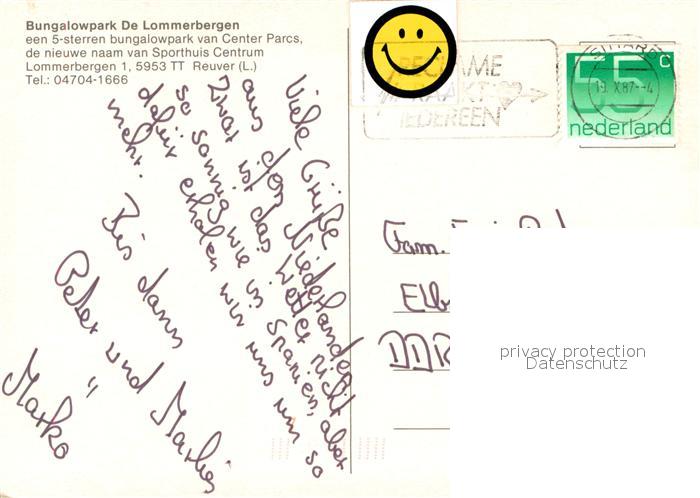 Bungalowpark De Lommerbergen
een 5-sterren bungalowpark van Center Parcs,
de nieuwe naam van Sporthuis Centrum
Lommerbergen 1, 5953 TT Reuver (L.)
Tel.: 04704-1666
RECLAME
RAAKT
IEDEREEN
SITTARD
19.X.87.-4
55 c
nederland
Viele Grüße
aus den Niederlanden
Zwar ist das Wetter nicht
so sonnig wie in Spanien, aber
dafür erholen wir uns um so
mehr.
Bis dann
Peter und
" Marko
Fam.
Elb
DDR
privacy protection
Datenschutz